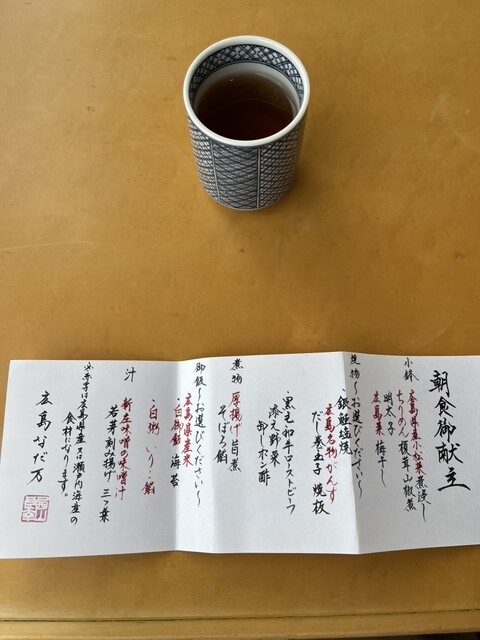 朝食御献立
小鉢
広島県産小松菜煮浸し
ちりめん 榎茸山椒煮
明太子
広島菜 梅干し
焼物〜お選びください〜
・銀鮭塩焼
広島名物がんす
だし巻玉子 焼板
・黒毛和牛ローストビーフ
添え野菜
卸しポン酢
煮物
厚揚げ旨煮
そぼろ餡
御飯〜お選びください〜
広島県産米
・白御飯 海苔
・白粥 いりこ餡
汁
新庄味噌の味噌汁
若芽 刻み揚げ 三つ葉
※赤字は広島県産又は瀬戸内海産の
食材になります。
広島なだ万